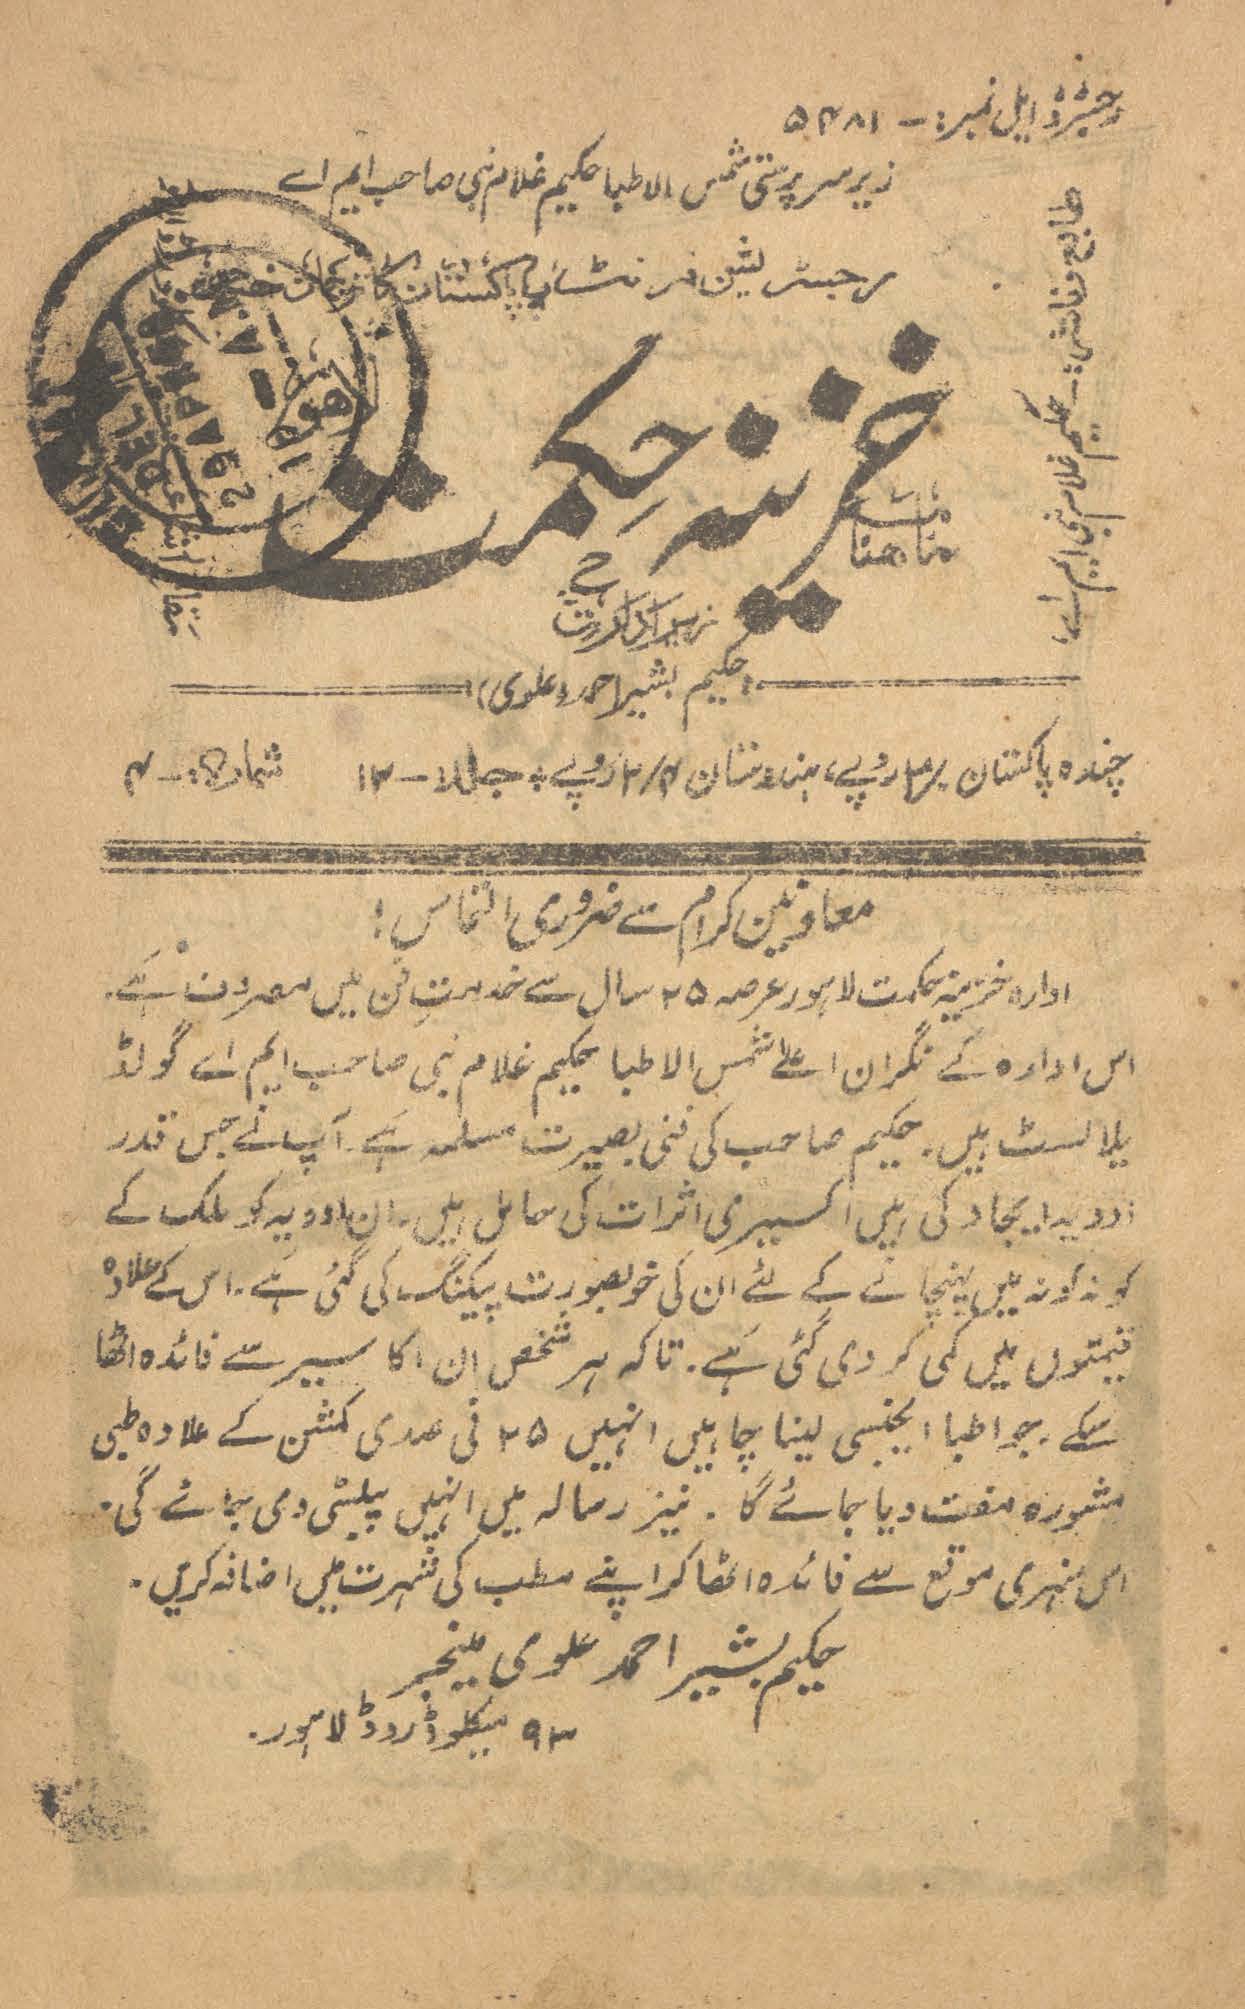 رجسٹرڈ ایل نمبر:- ۵۴۸۱
زیر سرپرستی شمس الاطبا حکیم غلام نبی صاحب ایم اے
رجسٹریشن فرنٹ پاکستان کا ترجمان
طابع و ناشر:- حکیم غلام نبی ایم اے
ماهنامہ
خزینہ حکمت
زیر ادارت
(حکیم بشیر احمد علوی)
چندہ پاکستان روپے، ہندوستان روپے جلد - ۱۳ شمارہ:- ۴
معاونین کرام سے ضروری التماس!
ادارہ خزینہ حکمت لاہور عرصہ ۲۵ سال سے خدمتِ فن میں مصروف ہے۔
اس ادارہ کے نگران اعلےٰ شمس الاطبا حکیم غلام نبی صاحب ایم اے گولڈ
یڈلسٹ ہیں۔ حکیم صاحب کی فنی بصیرت مسلمہ ہے۔ آپ نے جس قدر
ادویہ ایجاد کی ہیں اکسیری اثرات کی حامل ہیں۔ ان ادویہ کو ملک کے
کونہ کونہ میں پہنچانے کے لئے ان کی خوبصورت پیکنگ کی گئی ہے۔ اس کے علاوہ
قیمتوں میں کمی کر دی گئی ہے۔ تاکہ ہر شخص ان اکاسیر سے فائدہ اٹھا
سکے۔ جو اطبا ایجنسی لینا چاہیں انہیں ۲۵ فی صدی کمشن کے علاوہ طبی
مشورہ مفت دیا جائے گا۔ نیز رسالہ میں انہیں پبلسٹی دی جائے گی۔
اس سنہری موقع سے فائدہ اٹھا کر اپنے مطب کی شہرت میں اضافہ کریں۔
حکیم بشیر احمد علوی مینجر
۹۳ میکلوڈ روڈ لاہور۔